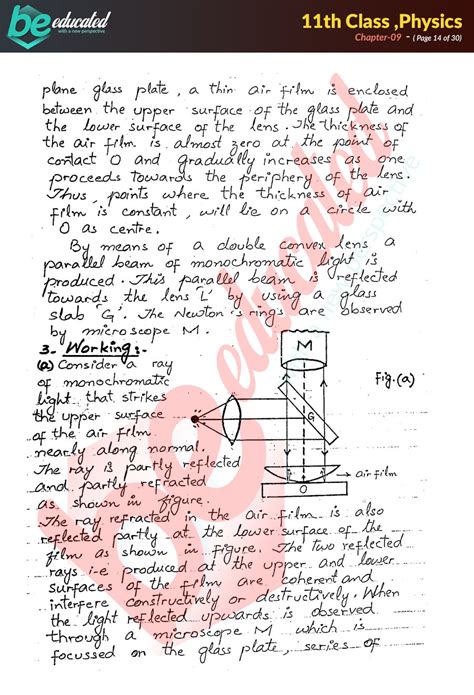 be educated
with a new perspective
11th Class ,Physics
Chapter-09 - ( Page 14 of 30)
plane glass plate, a thin air film is enclosed
between the upper surface of the glass plate and
the lower surface of the lens. The thickness of
the air film is almost zero at the point of
contact O and gradually increases as one
proceeds towards the periphery of the lens.
Thus, points where the thickness of air
film is constant, will lie on a circle with
O as centre.
By means of a double convex lens a
parallel beam of monochromatic light is
produced. This parallel beam is reflected
towards the lens 'L' by using a glass
slab 'G'. The Newton's rings are observed
by microscope M.
3- Working:-
(a) Consider a ray
of monochromatic
light that strikes
the upper surface
of the air film
nearly along normal.
The ray is partly reflected
and partly refracted
as shown in figure.
M
Fig.(a)
G
air film
O
The ray refracted in the air film is also
reflected partly at the lower surface of the
film as shown in figure. The two reflected
rays i-e produced at the upper and lower
surfaces of the film are coherent and
interfere constructively or destructively. When
the light reflected upwards is observed
through a microscope M which is
focussed on the glass plate, series of
be educated